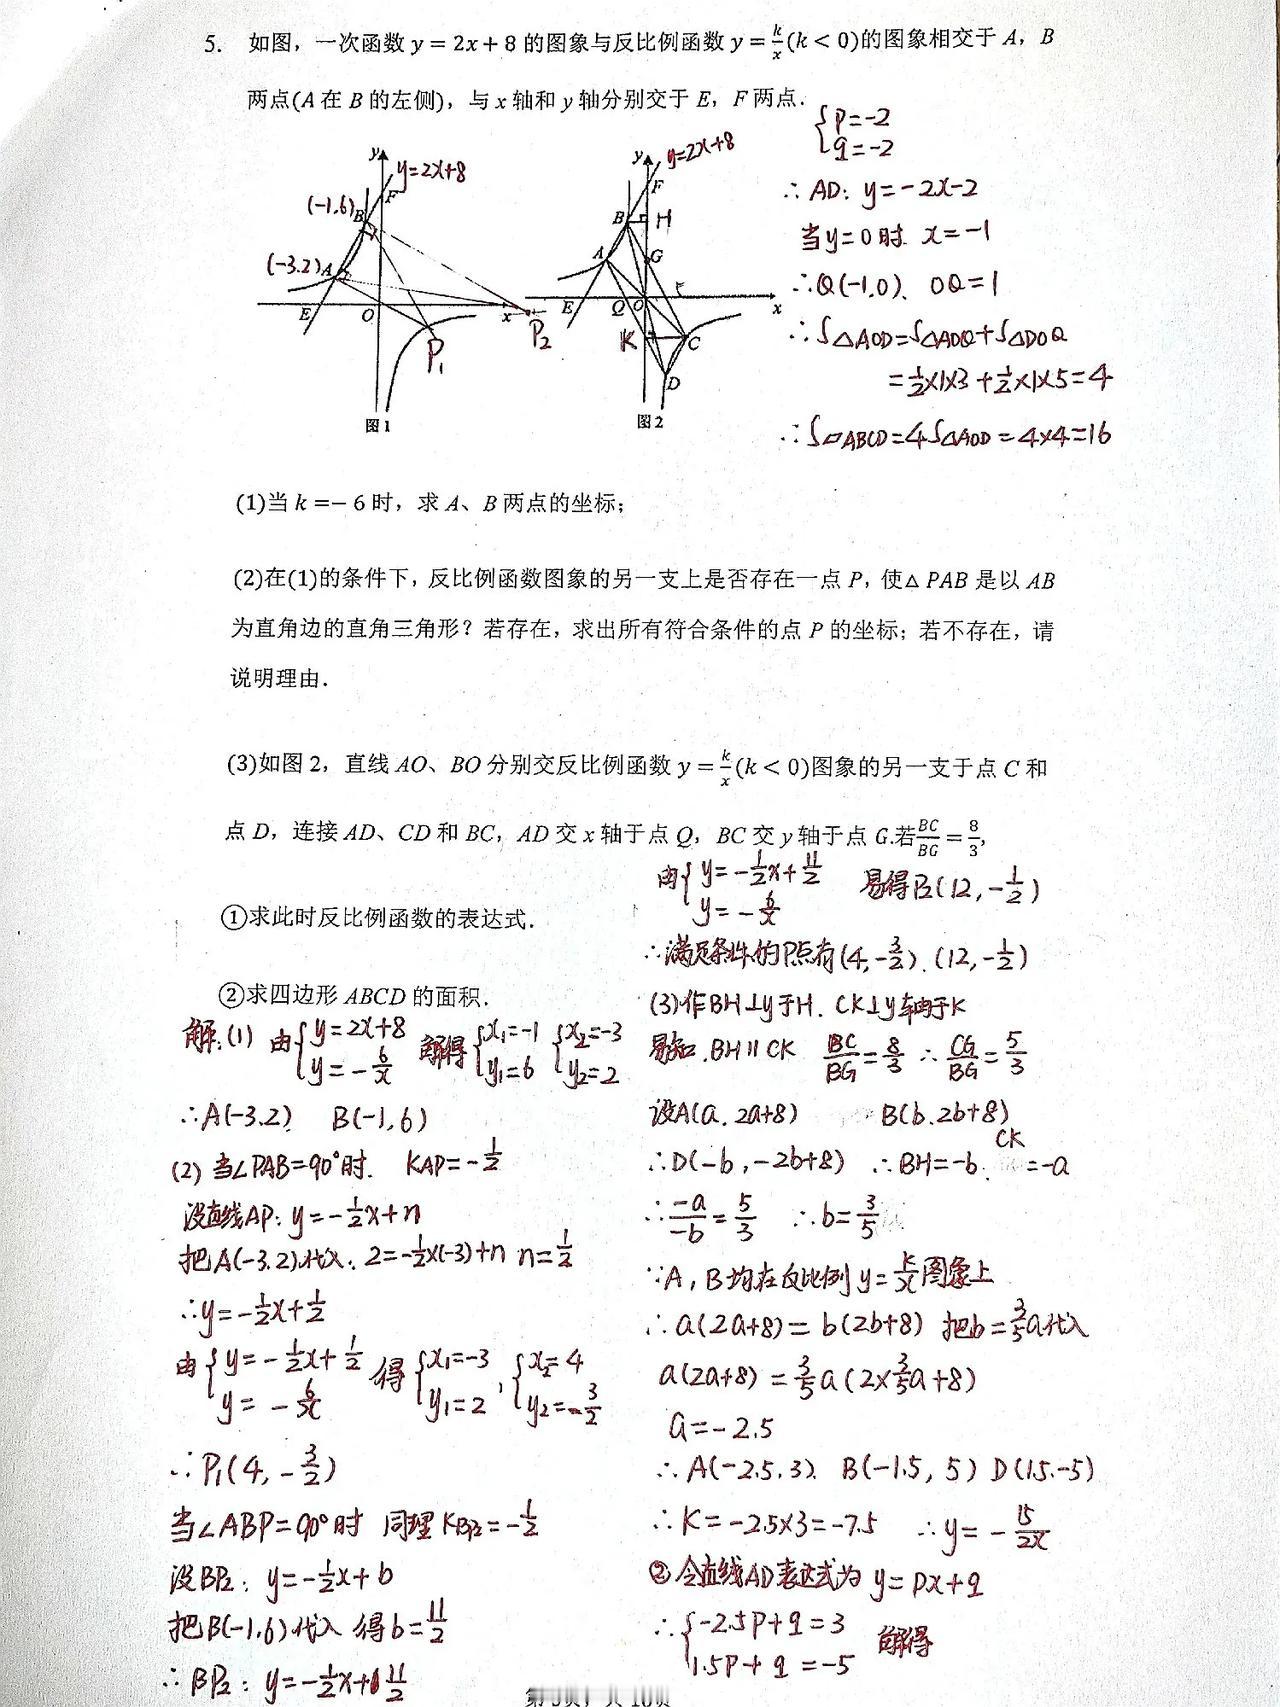 5. 如图，一次函数 y = 2x+8 的图象与反比例函数 y = k/x (k < 0)的图象相交于 A，B
两点(A 在 B 的左侧)，与 x 轴和 y 轴分别交于 E，F 两点．
{p=-2
q=-2
∴AD: y=-2x-2
当y=0时. x=-1
∴Q(-1,0)、OQ=1
∴S△AOD=S△AOQ+S△DOQ
=1/2×1×3+1/2×1×5=4
∴S▱ABCD=4S△AOD=4×4=16
y
y=2x+8
F
(-1,6)
B
(-3.2)
A
E
O
x
P₁
P₂
图1
y
y=2x+8
F
B
H
A
G
E
Q
O
x
K
C
D
图2
(1)当 k =− 6 时，求 A、B 两点的坐标；
(2)在(1)的条件下，反比例函数图象的另一支上是否存在一点 P，使△ PAB 是以 AB
为直角边的直角三角形？若存在，求出所有符合条件的点 P 的坐标；若不存在，请
说明理由．
(3)如图 2，直线 AO、BO 分别交反比例函数 y = k/x (k < 0)图象的另一支于点 C 和
点 D，连接 AD、CD 和 BC，AD 交 x 轴于点 Q，BC 交 y 轴于点 G.若BC/BG = 8/3,
①求此时反比例函数的表达式．
②求四边形 ABCD 的面积．
解:(1) 由{y=2x+8 y=-6/x 解得{x₁=-1 y₁=6 {x₂=-3 y₂=2
∴A(-3.2) B(-1,6)
(2) 当∠PAB=90°时. KAP=-1/2
设直线AP: y=-1/2x+n
把A(-3.2)代入. 2=-1/2×(-3)+n n=1/2
∴y=-1/2x+1/2
由{y=-1/2x+1/2 y=-6/x 得{x₁=-3 y₁=2 , {x₂=4 y₂=-3/2
∴P₁(4,-3/2)
当∠ABP=90°时 同理KBP₂=-1/2
设BP₂: y=-1/2x+b
把B(-1,6)代入 得b=11/2
∴BP₂: y=-1/2x+11/2
由{y=-1/2x+11/2 y=-6/x 易得P₂(12,-1/2)
∴满足条件的P点有(4,-3/2).(12,-1/2)
(3)作BH⊥y于H. CK⊥y轴于K
易知.BH∥CK BC/BG=8/3 ∴CG/BG=5/3
设A(a.2a+8) B(b.2b+8)
∴D(-b,-2b+8) ∴BH=-b. CK=-a
∴-a/-b=5/3 ∴b=3/5
∵A,B均在反比例y=k/x图象上
∴a(2a+8)=b(2b+8) 把b=3/5a代入
a(2a+8)=3/5a(2×3/5a+8)
a=-2.5
∴A(-2.5,3). B(-1.5,5) D(1.5.-5)
∴K=-2.5×3=-7.5 ∴y=-15/2x
②令直线AD表达式为y=px+q
∴{-2.5p+q=3 1.5p+q=-5 解得